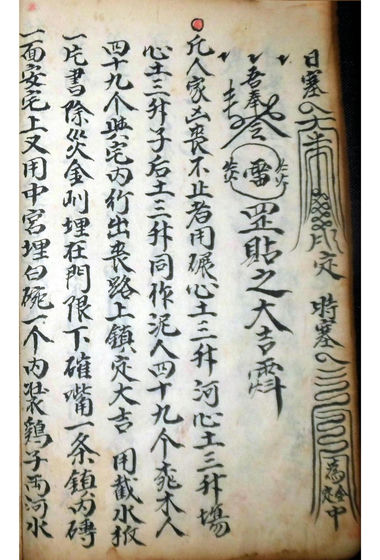 日塞 定 時塞 為 中
吾奉 雷 罡貼之大吉
凡人家凶喪不止者用碾心土三升河心土三升場
心土三升子后土三升同作泥人四十九个 木人
四十九个與宅內行出喪路上鎮定大吉 用截水板
一片書除災金 埋在門限下碓嘴一条鎮丙磚
一面安宅上又用中宮埋白碗一个內裝鶏子 河水